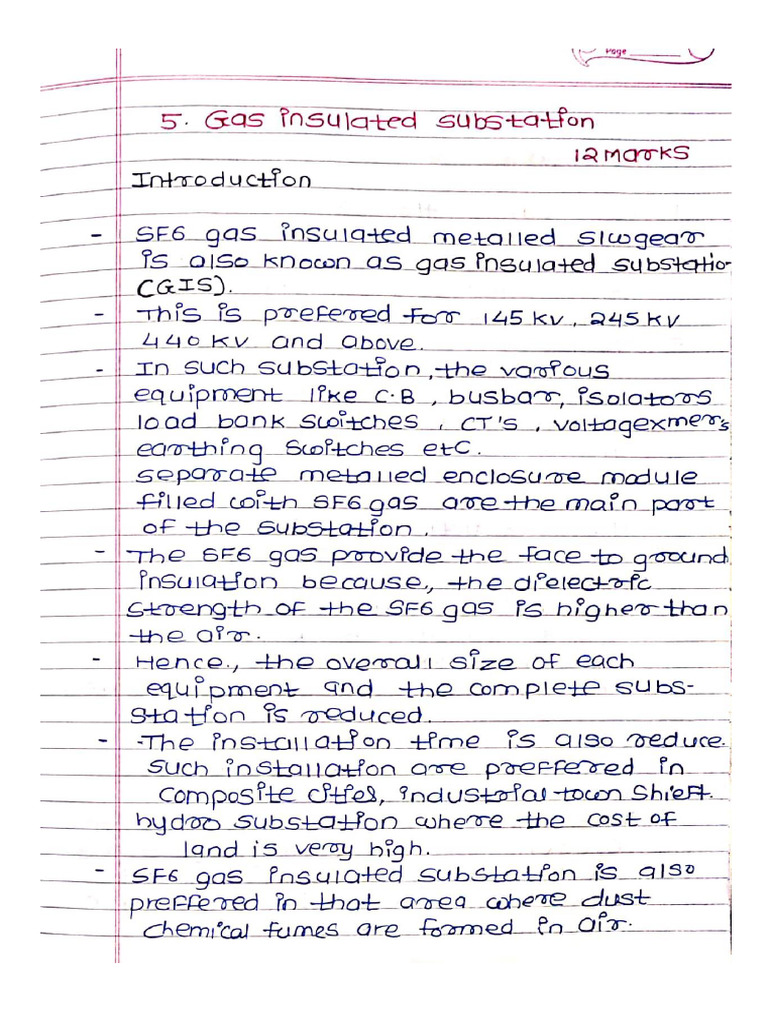 Page
5. Gas insulated substation
12 marks
Introduction
- SF6 gas insulated metalled s/wgear
is also known as gas insulated substatio
(GIS).
- This is prefered for 145 KV, 245 KV
440 KV and above.
- In such substation, the various
equipment like C.B, busbar, isolators
load bank switches, CT's, voltagexmers
earthing switches etc.
separate metalled enclosure module
filled with SF6 gas are the main part
of the substation.
- The SF6 gas provide the face to ground
insulation because, the dielectric
strength of the SF6 gas is higher than
the air.
- Hence, the overall size of each
equipment and the complete subs-
station is reduced.
- The installation time is also reduce.
such installation are preffered in
composite cities, industrial town shieft.
hydro substation where the cost of
land is very high.
- SF6 gas insulated substation is also
preffered in that area where dust
chemical fumes are formed in air.